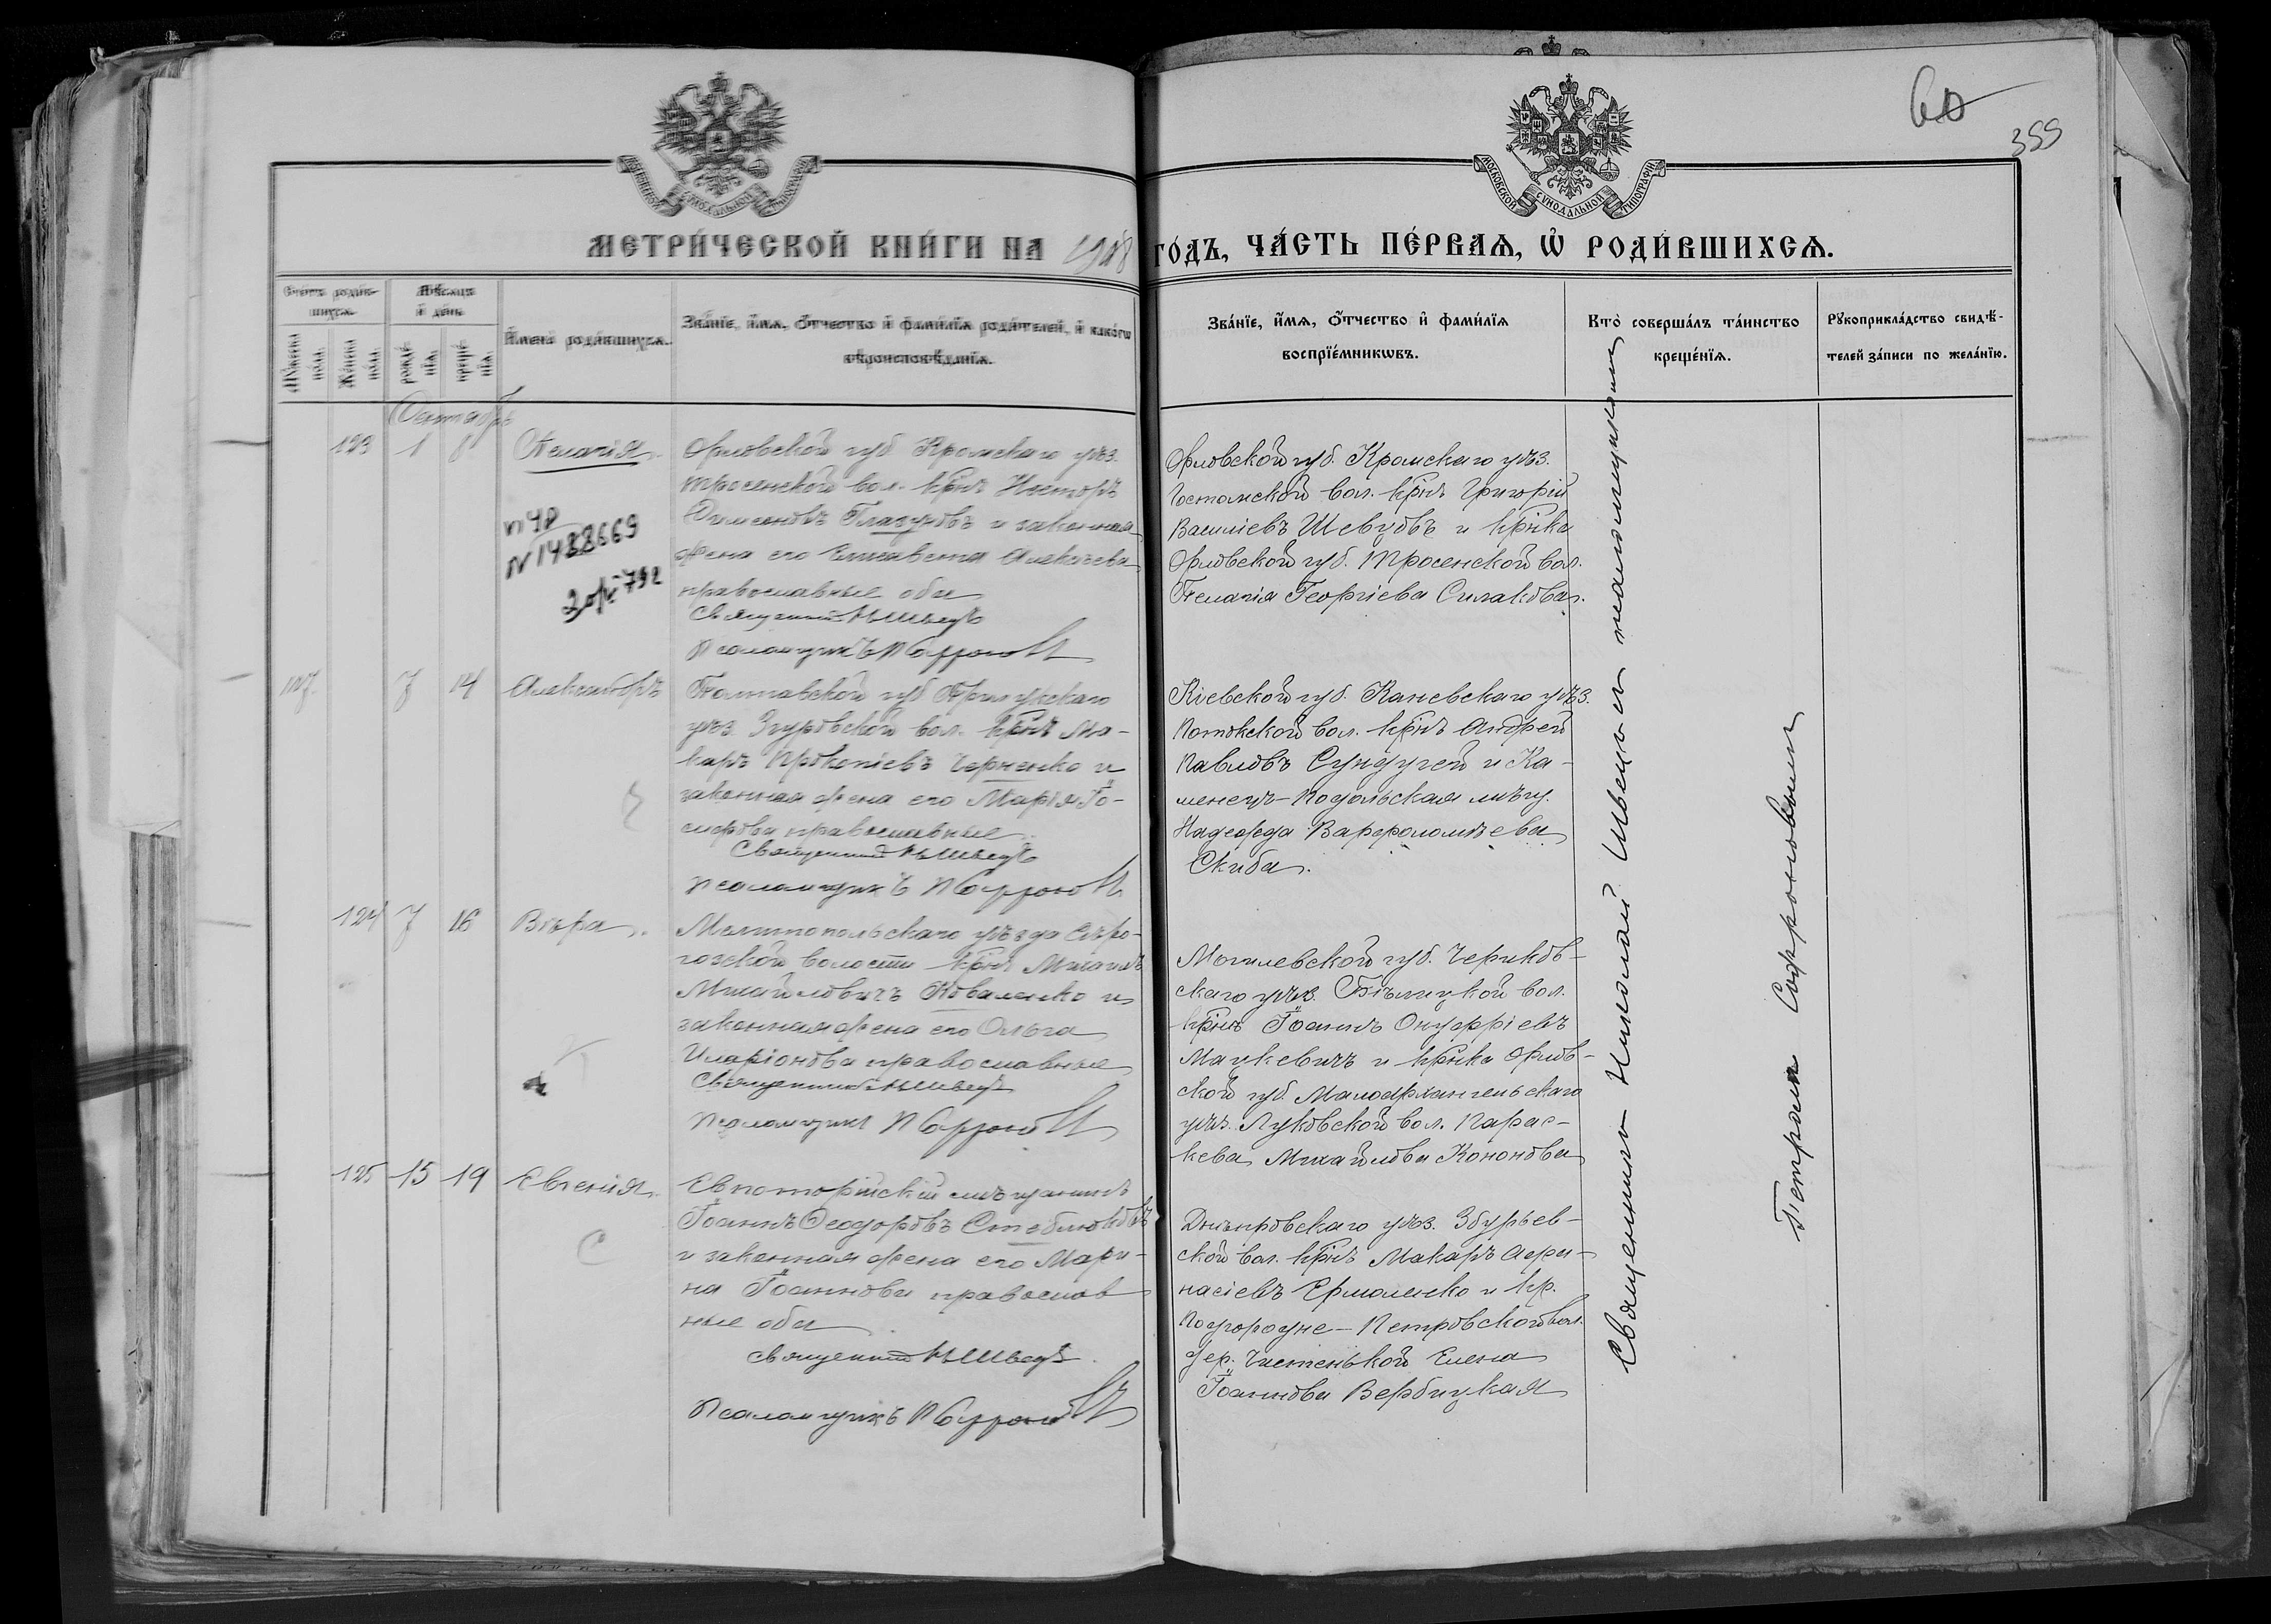 60
355
МОСКОВСКОЙ СѴНОДАЛЬНОЙ ТИПОГРАФІИ
МЕТРИ́ЧЕСКОЙ КНИ́ГИ НА 1908 ГО́ДЪ, ЧА́СТЬ ПЕ́РВАЯ, Ѡ҆ РОДИ́ВШИХСЯ.
Счетъ роди́вшихся.
Мѣ́сяцъ и҆ де́нь.
Му́жеска по́ла.
Же́нска по́ла.
рожде́нїя.
креще́нїя.
И҆мена̀ роди́вшихся.
Зва́нїе, и҆́мѧ, ѻ҆́тчество и҆ фами́лїѧ роди́телей, и҆ како́гѡ
вѣроисповѣ́данїѧ.
Зва́нїе, и҆́мѧ, ѻ҆́тчество и҆ фами́лїѧ
воспрїе́мникѡвъ.
Кто̀ соверша́лъ та́инство
креще́нїѧ.
Рꙋкоприкла́дство свидѣ́-
телей за́писи по жела́нїю.
Сентябрь
123 1 8 Пелагія
Орловской губ. Кромскаго уѣз.
Тросенской вол. крнъ Несторъ
Симеоновъ Глазуновъ и законная
жена его Елисавета Алексѣева
православные оба
Священникъ Н Швецъ
Псаломщикъ П Софроновъ
N 1488669
Орловской губ. Кромскаго уѣз.
Гостомской вол. крнъ Григорій
Василіевъ Шевцовъ и крнка
Орловской губ. Тросенской вол.
Пелагія Георгіева Силакова.
117 7 14 Александръ
Полтавской губ. Прилукскаго
уѣз. Згуровской вол. крнъ Ма-
каръ Прокопіевъ Черненко и
законная жена его Марія Іо-
сифова православные
Священникъ Н Швецъ
Псаломщикъ П Софроновъ
Кіевской губ. Каневскаго уѣз.
Потокской вол. крнъ Андрей
Павловъ Сундугей и Ка-
менецъ-Подольская мѣщ.
Надежда Варфоломѣева
Скиба.
124 7 16 Вѣра.
Мелитопольскаго уѣзда Сѣро-
гозской волости крнъ Михаилъ
Михайловичъ Коваленко и
законная жена его Ольга
Иларіонова православные
Священникъ Н Швецъ
Псаломщикъ П Софроновъ
Могилевской губ. Чериков-
скаго уѣз. Бѣлицкой вол.
крнъ Іоаннъ Онуфріевъ
Мацкевичъ и крнка Орлов-
ской губ. Малоархангельскаго
уѣз. Луковской вол. Парас-
кева Михайлова Кононова
125 15 19 Евгенія.
Евпаторійскій мѣщанинъ
Іоаннъ Ѳеодоровъ Стеблюковъ
и законная жена его Мари-
на Іоаннова православ
ные оба
Священникъ Н Швецъ.
Псаломщикъ П Софроновъ
Днѣпровскаго уѣз. Збурьев-
ской вол. крнъ Макаръ Афа-
насіевъ Ермоленко и кр.
Подгородне-Петровской вол.
дер. Чистенькой Елена
Іоаннова Вербицкая
Священникъ Николай Швецъ и псаломщикомъ
Петромъ Софроновымъ